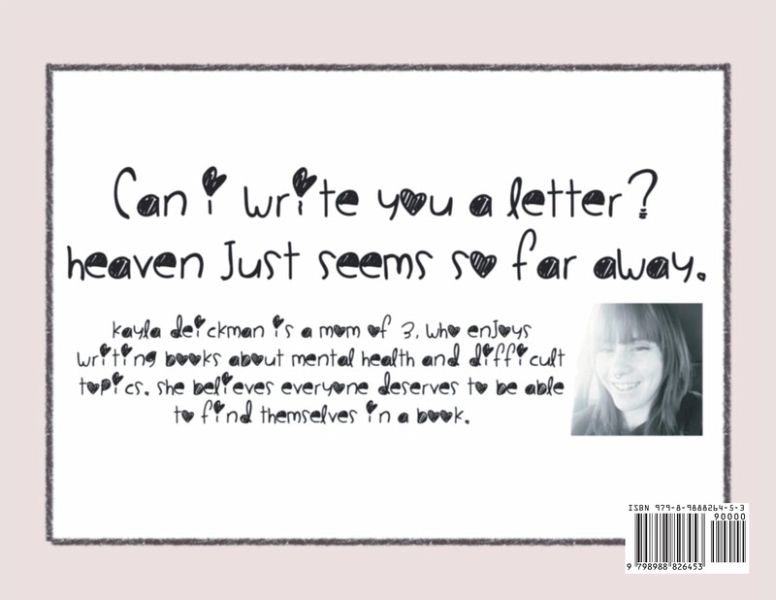 Can i write you a letter?
heaven Just seems so far away.
kayla deickman is a mom of 3, who enjoys
writing books about mental health and difficult
topics. she believes everyone deserves to be able
to find themselves in a book.
ISBN 979-8-9888264-5-3
90000
9 798988 826453